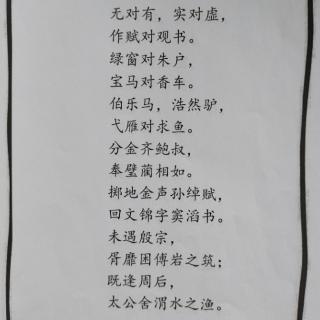 无对有，实对虚，
作赋对观书。
绿窗对朱户，
宝马对香车。
伯乐马，浩然驴，
弋雁对求鱼。
分金齐鲍叔，
奉璧蔺相如。
掷地金声孙绰赋，
回文锦字窦滔书。
未遇殷宗，
胥靡困傅岩之筑；
既逢周后，
太公舍渭水之渔。